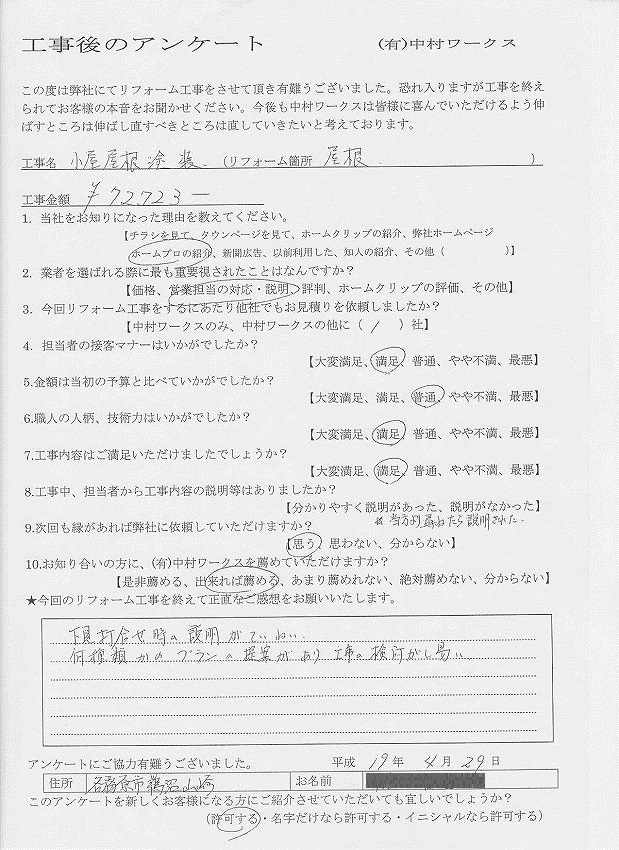 工事後のアンケート　(有)中村ワークス
この度は弊社にてリフォーム工事をさせて頂き有難うございました。恐れ入りますが工事を終え
られてお客様の本音をお聞かせください。今後も中村ワークスは皆様に喜んでいただけるよう伸
ばすところは伸ばし直すべきところは直していきたいと考えております。
工事名　小屋屋根塗装　(リフォーム箇所　屋根　)
工事金額　¥72,723－
1. 当社をお知りになった理由を教えてください。
【チラシを見て、タウンページを見て、ホームクリップの紹介、弊社ホームページ
ホームプロの紹介、新聞広告、以前利用した、知人の紹介、その他（　　）】
2. 業者を選ばれる際に最も重要視されたことはなんですか？
【価格、営業担当の対応・説明、評判、ホームクリップの評価、その他】
3. 今回リフォーム工事をするにあたり他社でもお見積りを依頼しましたか？
【中村ワークスのみ、中村ワークスの他に（ / ）社】
4. 担当者の接客マナーはいかがでしたか？
【大変満足、満足、普通、やや不満、最悪】
5.金額は当初の予算と比べていかがでしたか？
【大変満足、満足、普通、やや不満、最悪】
6.職人の人柄、技術力はいかがでしたか？
【大変満足、満足、普通、やや不満、最悪】
7.工事内容はご満足いただけましたでしょうか？
【大変満足、満足、普通、やや不満、最悪】
8.工事中、担当者から工事内容の説明等はありましたか？
【分かりやすく説明があった、説明がなかった】
9.次回も縁があれば弊社に依頼していただけますか？　※当方より尋ねたら説明された.
【思う、思わない、分からない】
10.お知り合いの方に、(有)中村ワークスを薦めていただけますか？
【是非薦める、出来れば薦める、あまり薦めれない、絶対薦めない、分からない】
★今回のリフォーム工事を終えて正直なご感想をお願いいたします。
下見打合せ時の説明がていねい.
何種類かのプランの提案があり工事の検討がし易い
アンケートにご協力有難うございました。　平成 19年 4月 29日
住所　各務原市鵜沼山崎　お名前
このアンケートを新しくお客様になる方にご紹介させていただいても宜しいでしょうか？
（許可する・名字だけなら許可する・イニシャルなら許可する）